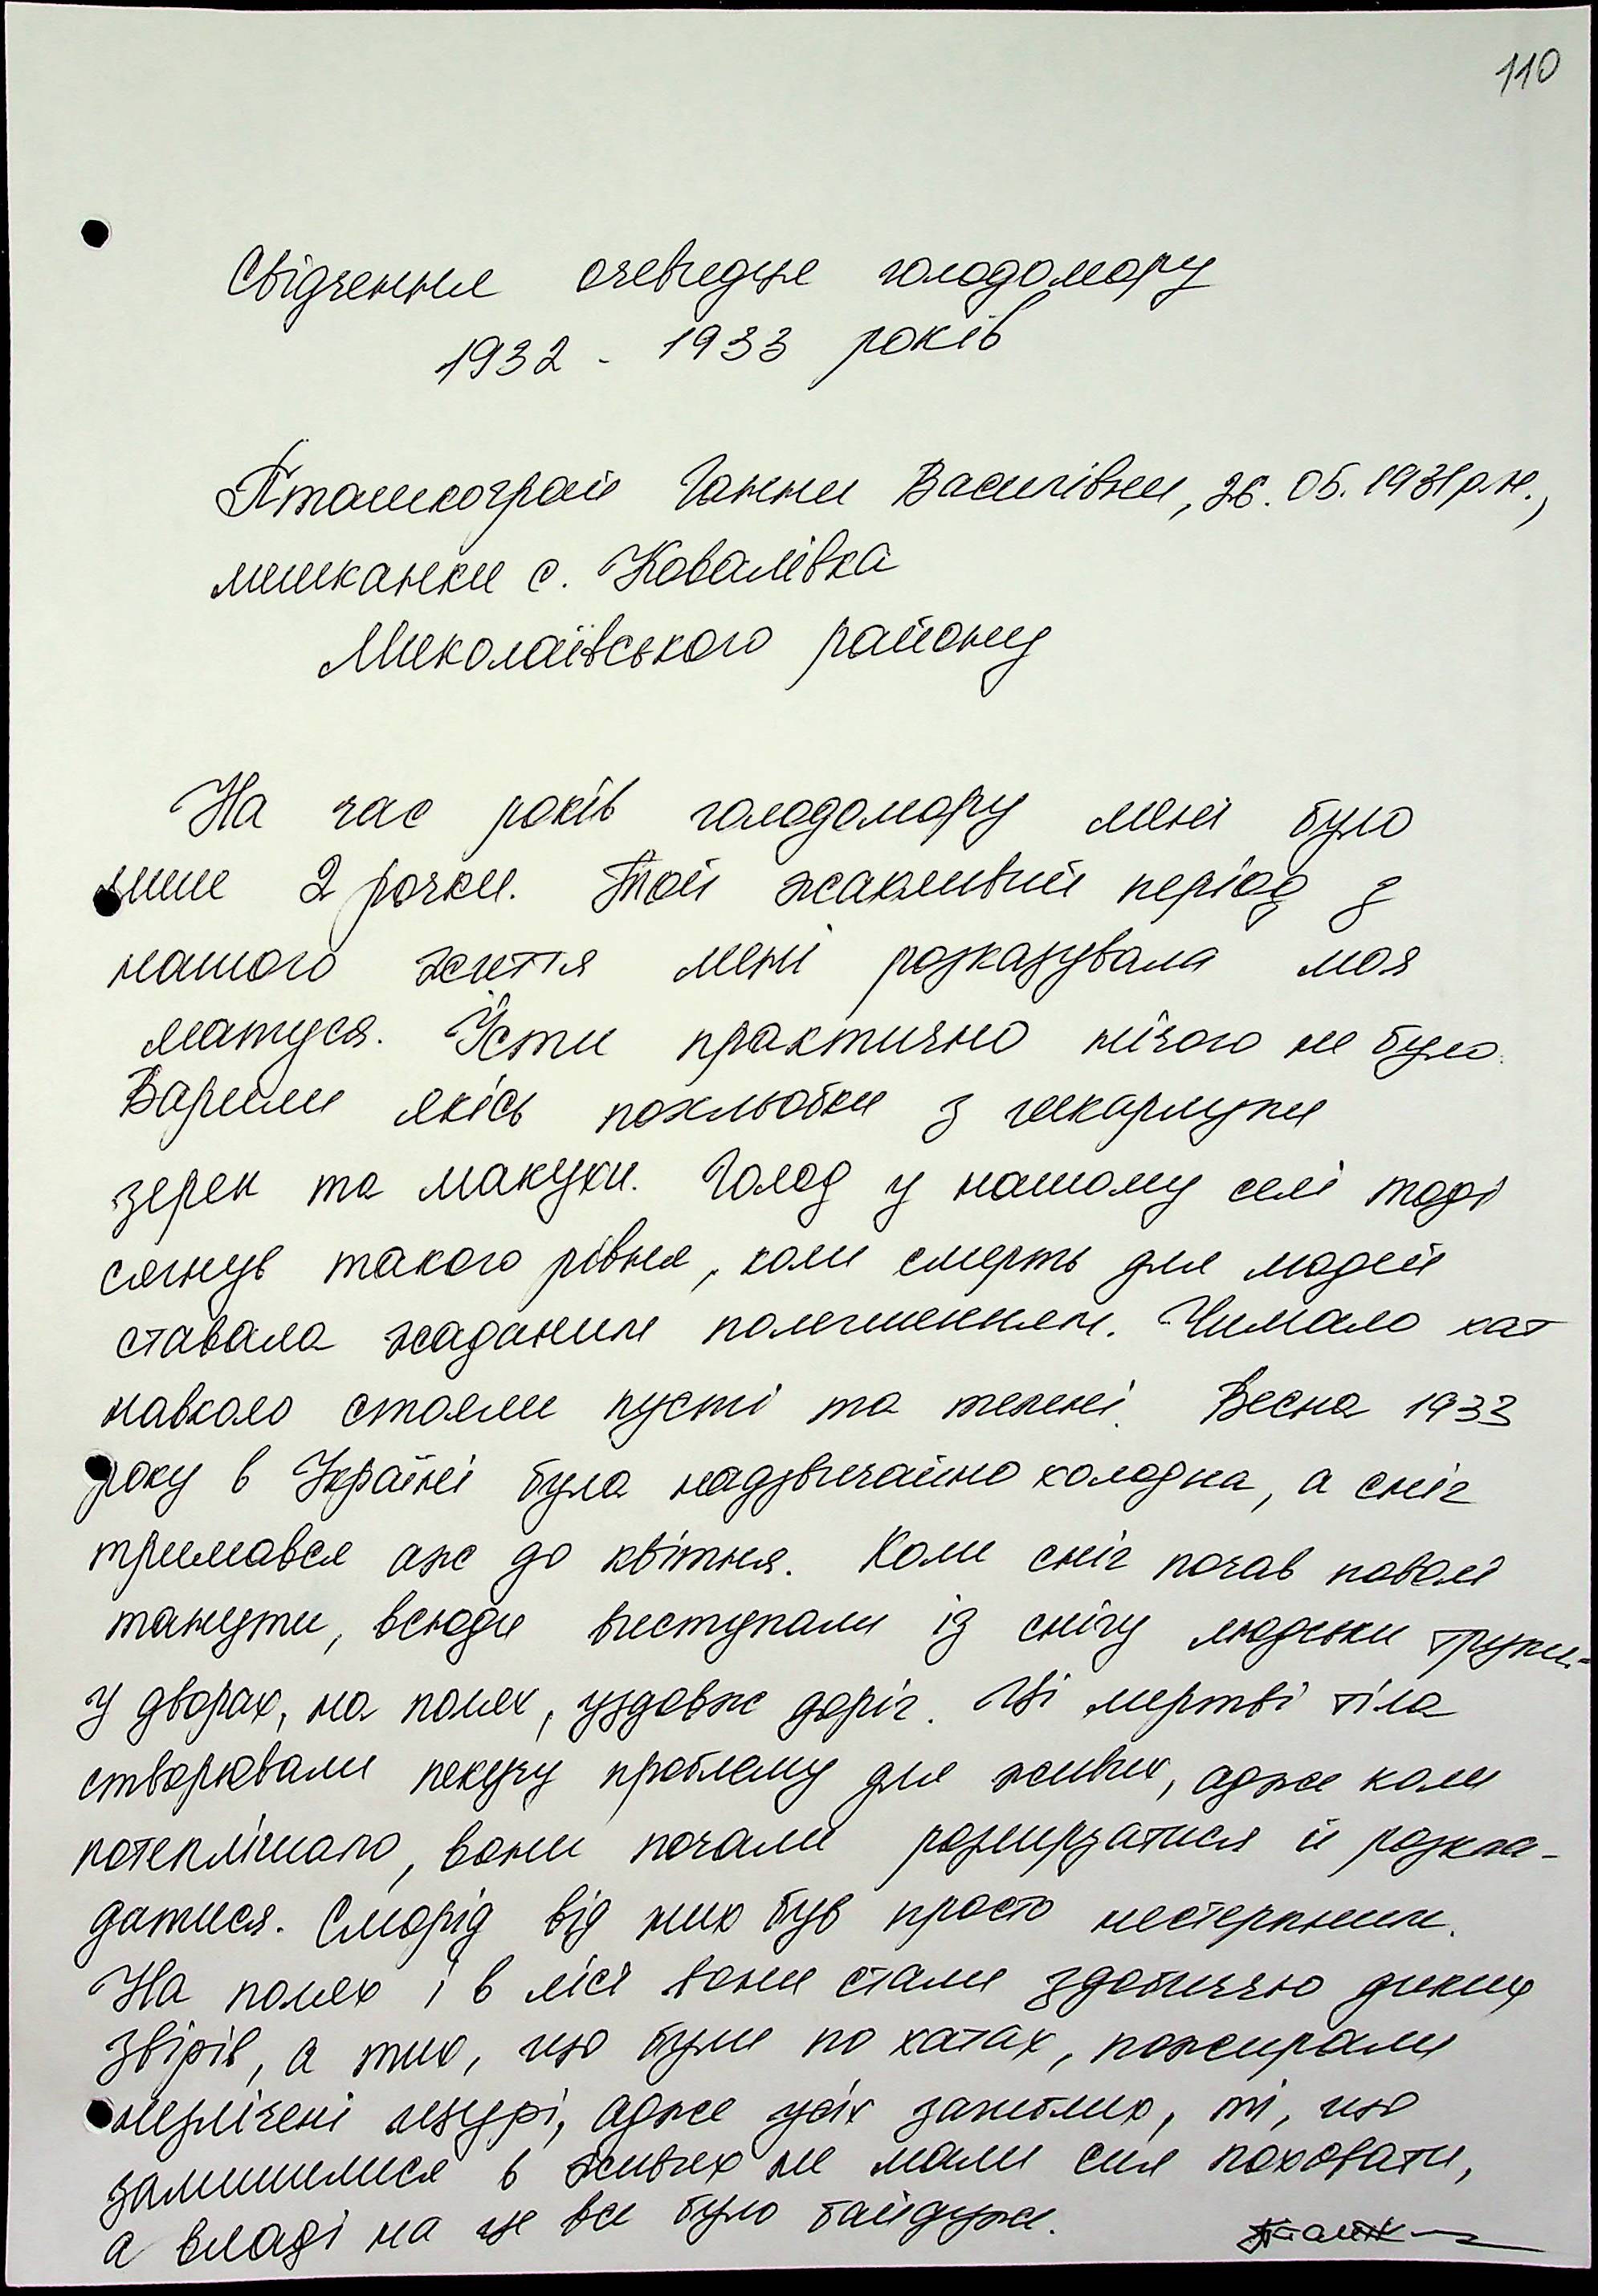 110
Свідчення очевидця голодомору
1932 - 1933 років
Пташкограй Ганни Василівни, 26. 05. 1931 р.н.,
мешканки с. Ковалівка
Миколаївського району
На час років голодомору мені було
лише 2 рочки. Той жахливий період з
нашого життя мені розказувала моя
матуся. Їсти практично нічого не було.
Варили якісь похльобки з шкарлупи
зерен та макухи. Голод у нашому селі тоді
сягнув такого рівня, коли смерть для людей
ставала жаданим полегшенням. Чимало хат
навколо стояли пусті та темні. Весна 1933
року в Україні була надзвичайно холодна, а сніг
тримався аж до квітня. Коли сніг почав поволі
танути, всюди виступали із снігу людськи трупи -
у дворах, на полях, уздовж доріг. Ці мертві тіла
створювали пекучу проблему для живих, адже коли
потеплішало, вони почали розмерзатися й розкла-
датися. Сморід від них був просто нестерпним.
На полях і в лісі вони стали здобиччю диких
звірів, а тих, що були по хатах, пожирали
незлічені щурі, адже усіх загиблих, ті, що
залишилися в живих не мали сил поховати,
а владі на це все було байдуже.